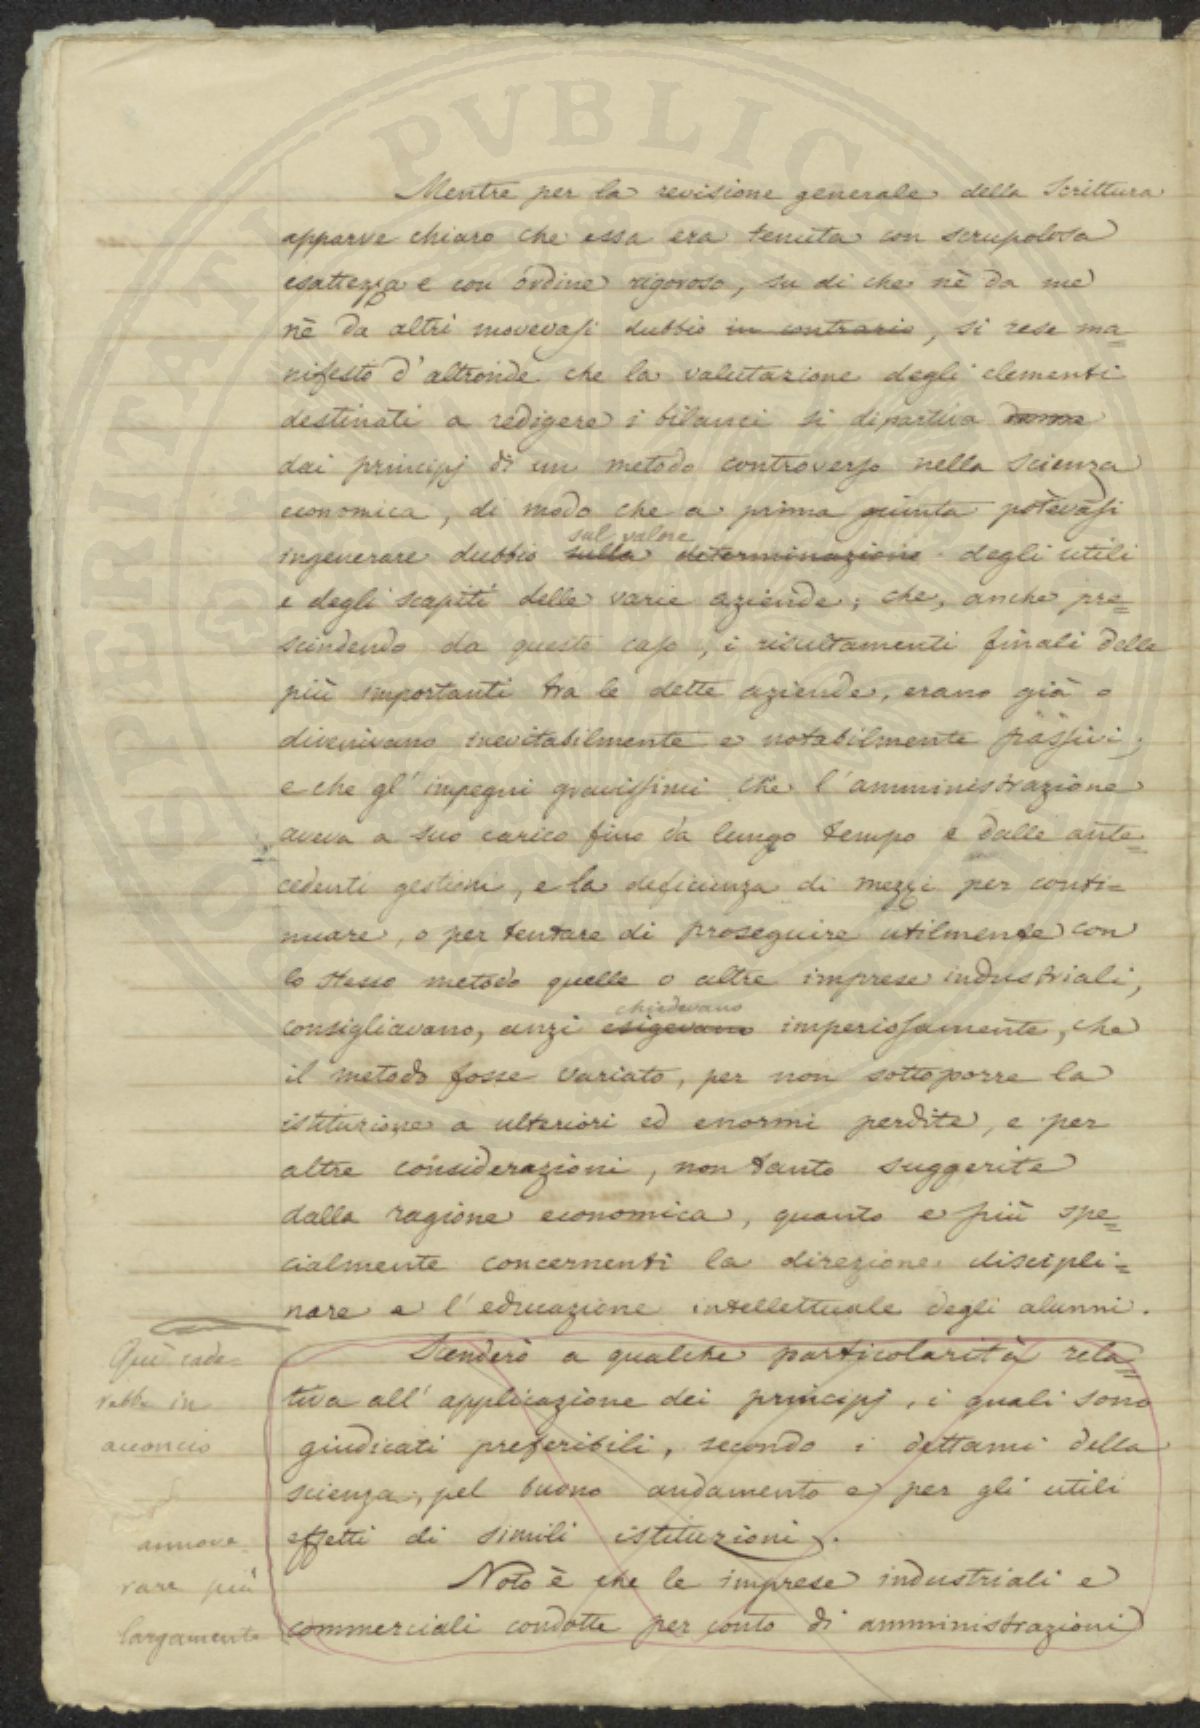 Mentre per la revisione generale della Scrittura
apparve chiaro che essa era tenuta con scrupolosa
esattezza e con ordine rigoroso, su di che nè da me
nè da altri movevasi dubbio in contrario, si rese ma=
nifesto d'altronde che la valutazione degli elementi
destinati a redigere i bilanci si dipartiva
dai principj di un metodo controverso nella scienza
economica, di modo che a prima giunta potevasi
sul valore
ingenerare dubbio sulla determinazione degli utili
e degli scapiti delle varie aziende; che, anche pre=
scindendo da questo caso, i risultamenti finali delle
più importanti tra le dette aziende, erano già o
divenivano inevitabilmente e notabilmente passivi;
e che gl'impegni gravissimi che l'amministrazione
aveva a suo carico fino da lungo tempo e dalle ante=
cedenti gestioni, e la deficienza di mezzi per conti=
nuare, o per tentare di proseguire utilmente con
lo stesso metodo quelle o altre imprese industriali,
chiedevano
consigliavano, anzi esigevano imperiosamente, che
il metodo fosse variato, per non sottoporre la
istituzione a ulteriori ed enormi perdite, e per
altre considerazioni, non tanto suggerite
dalla ragione economica, quanto e più spe=
cialmente concernenti la direzione discipli=
nare e l'educazione intellettuale degli alunni.
Scenderò a qualche particolarità rela=
tiva all'applicazione dei principj, i quali sono
giudicati preferibili, secondo i dettami della
scienza, pel buono andamento e per gli utili
effetti di simili istituzioni.
Noto è che le imprese industriali e
commerciali condotte per conto di amministrazioni
Quì cade=
rebbe in
acconcio
annove
rare più
largamente
PVBLICAE